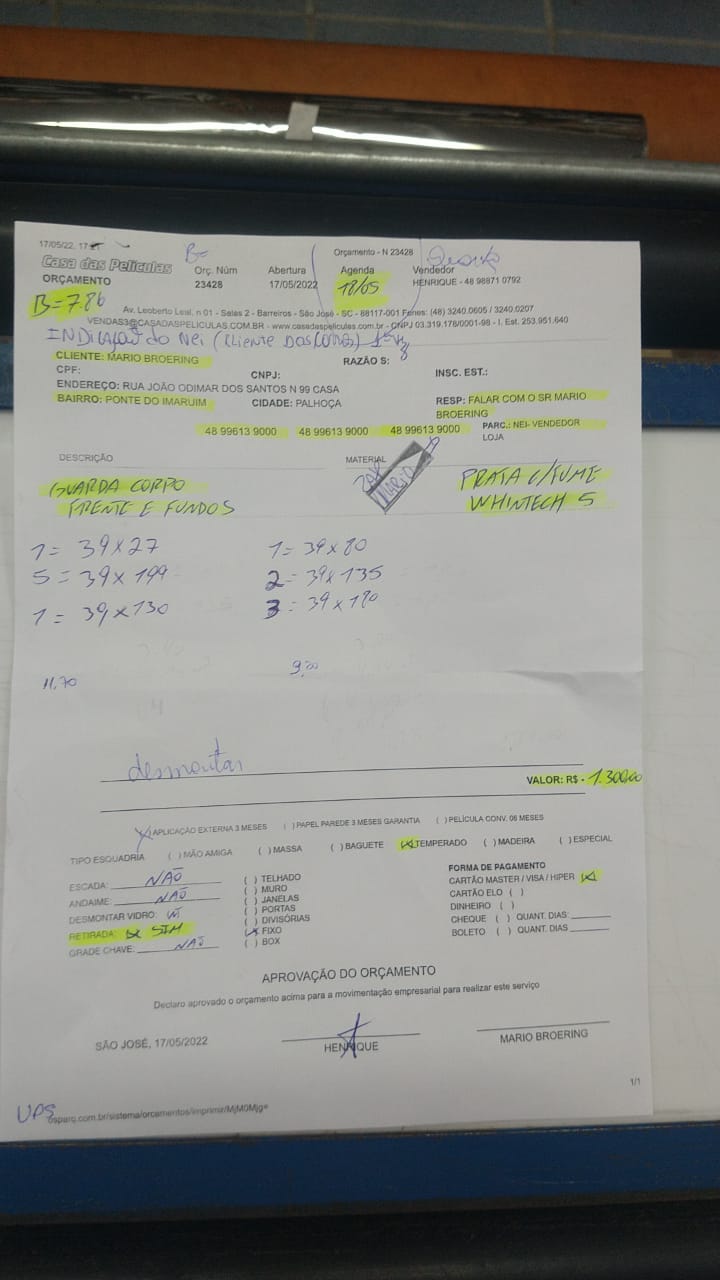 17/05/22, 17
Orçamento - N 23428
B=
Casa das Películas
ORÇAMENTO
Orç. Núm
Abertura
Agenda
Vendedor
23428
17/05/2022
18/05
HENRIQUE - 48 98871 0792
B=7.86
Av. Leoberto Leal, n 01 - Salas 2 - Barreiros - São José - SC - 88117-001 Fones: (48) 3240.0605 / 3240.0207
VENDAS3@CASADASPELICULAS.COM.BR - www.casadaspeliculas.com.br - CNPJ 03.319.178/0001-98 - I. Est. 253.951.640
INDICAÇÃO do Nei (Cliente DAS
CLIENTE: MARIO BROERING
RAZÃO S:
CPF:
CNPJ:
INSC. EST.:
ENDEREÇO: RUA JOÃO ODIMAR DOS SANTOS N 99 CASA
BAIRRO: PONTE DO IMARUIM
CIDADE: PALHOÇA
RESP: FALAR COM O SR MARIO
BROERING
48 99613 9000 48 99613 9000 48 99613 9000
PARC.: NEI- VENDEDOR
LOJA
DESCRIÇÃO
MATERIAL
GUARDA CORPO
FRENTE E FUNDOS
PRATA C/FUME
WHINTECH 5
1= 39x27
1= 39x80
5= 39x199
2= 39x135
1= 39x130
3= 39x180
11,70
desmontar
VALOR: R$ - 1.300,00
(X) APLICAÇÃO EXTERNA 3 MESES ( ) PAPEL PAREDE 3 MESES GARANTIA ( ) PELÍCULA CONV. 06 MESES
TIPO ESQUADRIA ( ) MÃO AMIGA ( ) MASSA ( ) BAGUETE (X) TEMPERADO ( ) MADEIRA ( ) ESPECIAL
ESCADA: NÃO
ANDAIME: NÃO
DESMONTAR VIDRO: (X)
RETIRADA: (X) SIM
GRADE CHAVE: NÃO
( ) TELHADO
( ) MURO
( ) JANELAS
( ) PORTAS
( ) DIVISÓRIAS
(X) FIXO
( ) BOX
FORMA DE PAGAMENTO
CARTÃO MASTER / VISA / HIPER (X)
CARTÃO ELO ( )
DINHEIRO ( )
CHEQUE ( ) QUANT. DIAS:
BOLETO ( ) QUANT. DIAS
APROVAÇÃO DO ORÇAMENTO
Declaro aprovado o orçamento acima para a movimentação empresarial para realizar este serviço
SÃO JOSÉ, 17/05/2022
HENRIQUE
MARIO BROERING
1/1
UPS
osparq.com.br/sistema/orcamentos/imprimir/MjM0Mjg=